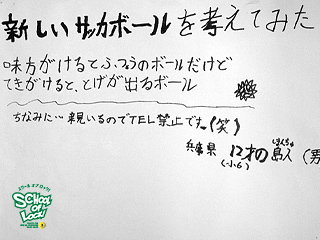 新しいサッカボールを考えてみた
味方がけるとふつうのボールだけど
てきがけると、とげが出るボール
ちなみに…親いるのでTEL禁止です。(笑)
兵庫県 12才の島人(男
(小6)
スクール オブ ロック!
SCHOOL OF LOCK!